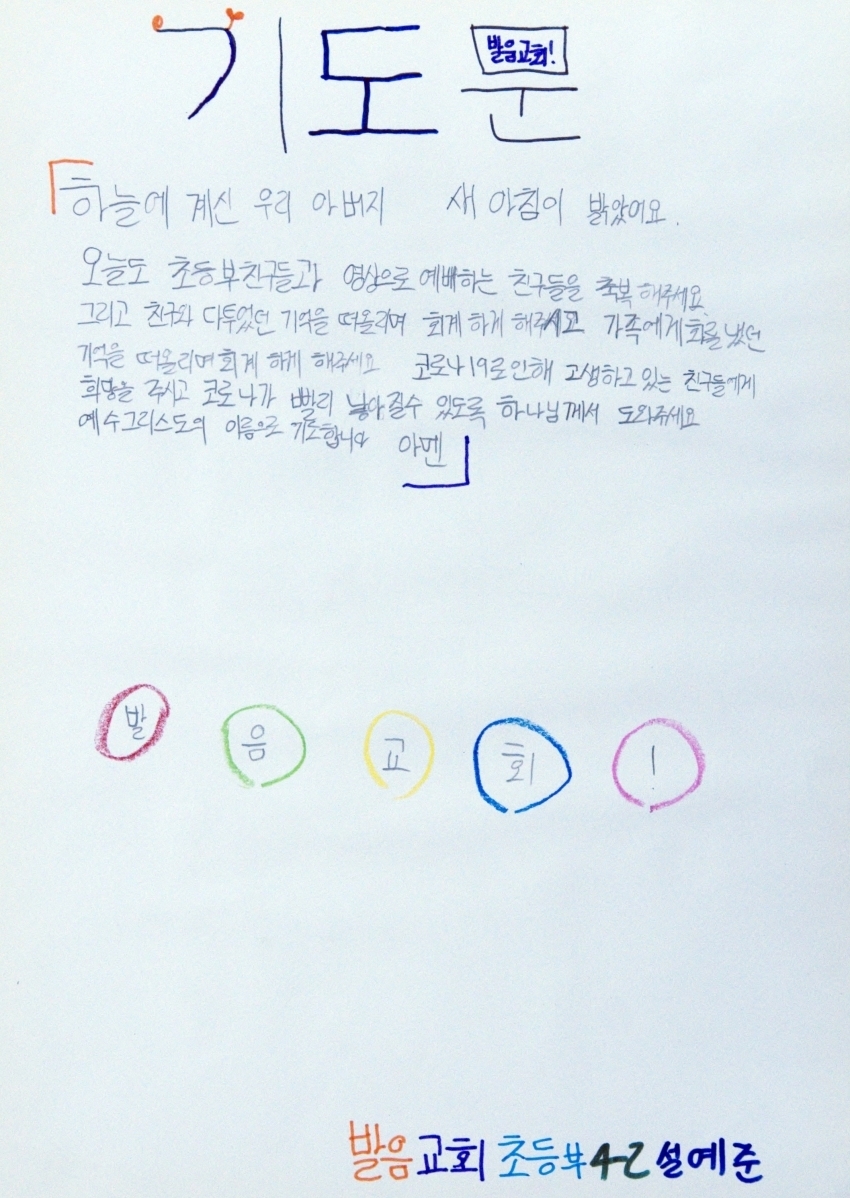 기도문
발음교회!
「하늘에 계신 우리 아버지 새 아침이 밝았어요.
오늘도 초등부친구들과 영상으로 예배하는 친구들을 축복해주세요.
그리고 친구와 다투었던 기억을 떠올리며 회계하게 해주시고 가족에게 화를 냈던
기억을 떠올리며 회계 하게 해주세요 코로나19로 인해 고생하고 있는 친구들에게
희망을 주시고 코로나가 빨리 낳아질수 있도록 하나님께서 도와주세요
예수그리스도의 이름으로 기도합니다 아멘」
발음교회!
발음교회 초등부 4-2 설예준